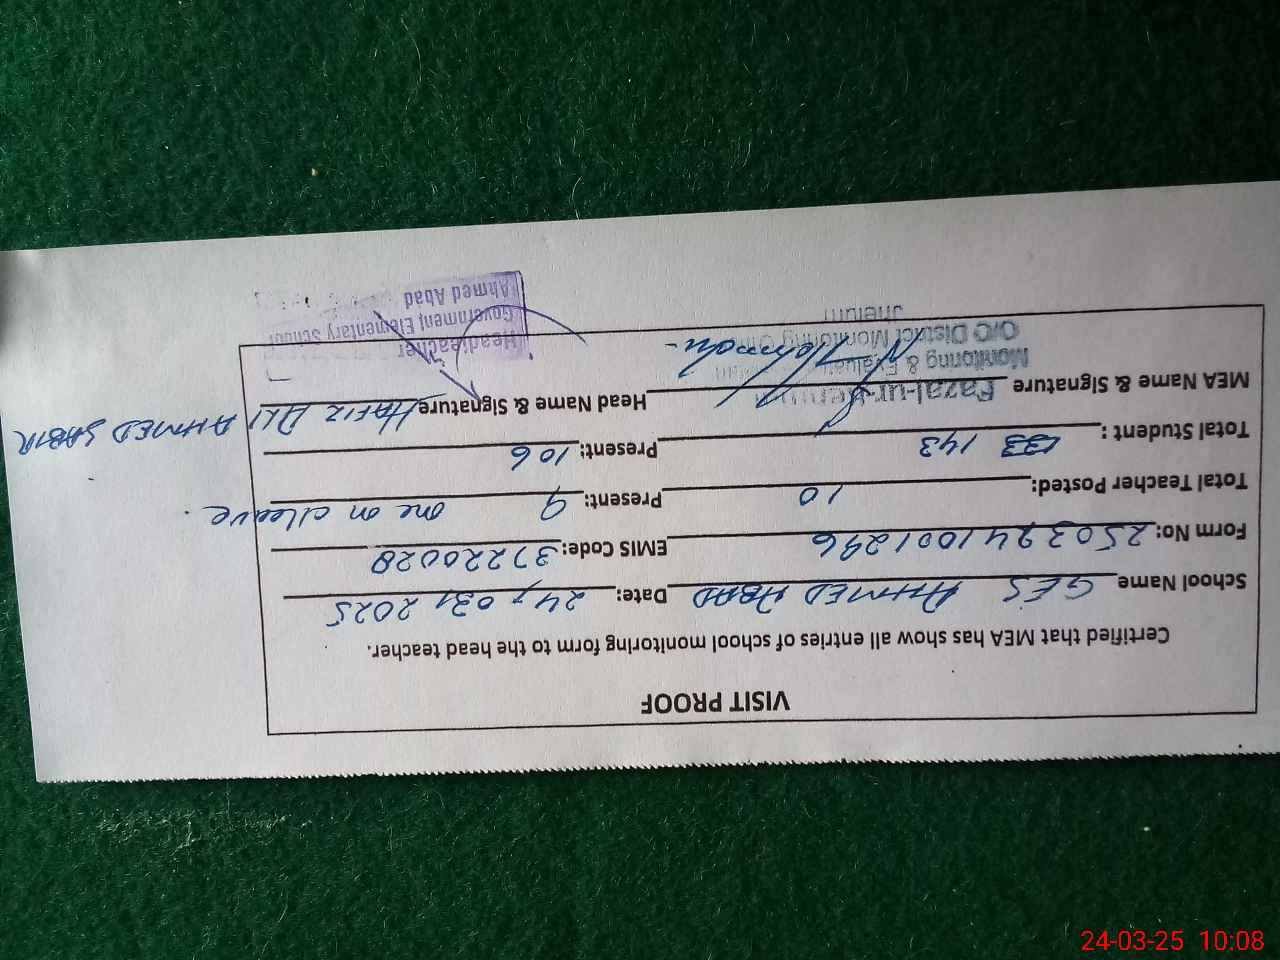 VISIT PROOF
Certified that MEA has show all entries of school monitoring form to the head teacher.
School Name GES AHMED ABAD Date: 24, 03, 2025
Form No: 2503941001296 EMIS Code: 37220028
Total Teacher Posted: 10 Present: 9 one on cleave.
Total Student : 143 Present: 106
MEA Name & Signature Head Name & Signature HAFIZ ALI AHMED SABIR
Fazal-ur-Rehman
Monitoring & Evaluation
O/C District Monitoring
Jhelum
Headteacher
Government Elementary School
Ahmed Abad
24-03-25 10:08